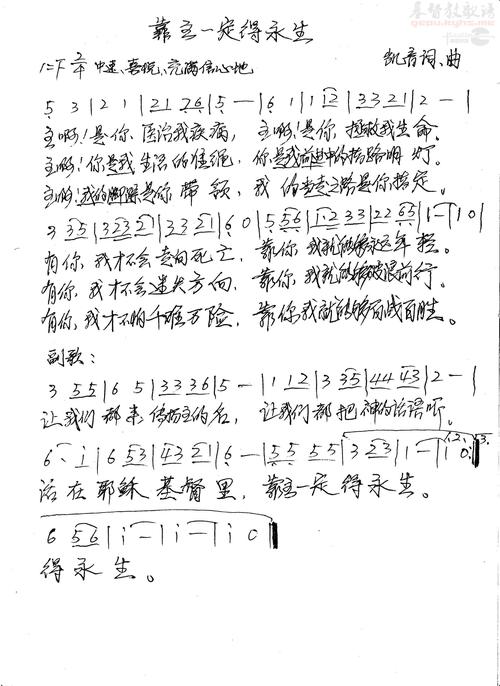 基督教歌谱
靠主一定得永生
1=F 2/4 中速、喜悦、充满信心地
凯音词、曲
5 3 | 2 1 | 21 76 | 5 — | 6 1 | 1 12 | 33 21 | 2 — |
主啊!是你 医治我疾病, 主啊!是你 拯救我生命。
主啊!你是我生活的准绳, 你是我前进中的指路明灯。
主啊!我的脚踪是你带领, 我的当走之路是你指定。
3 35 | 323 2 | 33 21 | 6 0 | 5 56 | 12 33 | 22 65 | 1 — | 1 0 |
有你,我才不会走向死亡, 靠你,我就能够永远年轻。
有你,我才不会迷失方向, 靠你,我就能够破浪前行。
有你,我才不怕千难万险, 靠你我就能够百战百胜。
副歌:
3 55 | 6 5 | 33 36 | 5 — | 1 12 | 3 35 | 44 43 | 2 — |
让我们都来传扬主的名, 让我们都把神的话语听。
6· i | 6 53 | 43 21 | 6 — | 55 55 | 3 23 | 1 — | 1 0 :|
活在耶稣基督里, 靠主一定得永生。
6 56 | i — | i — | i 0 |
得永生。